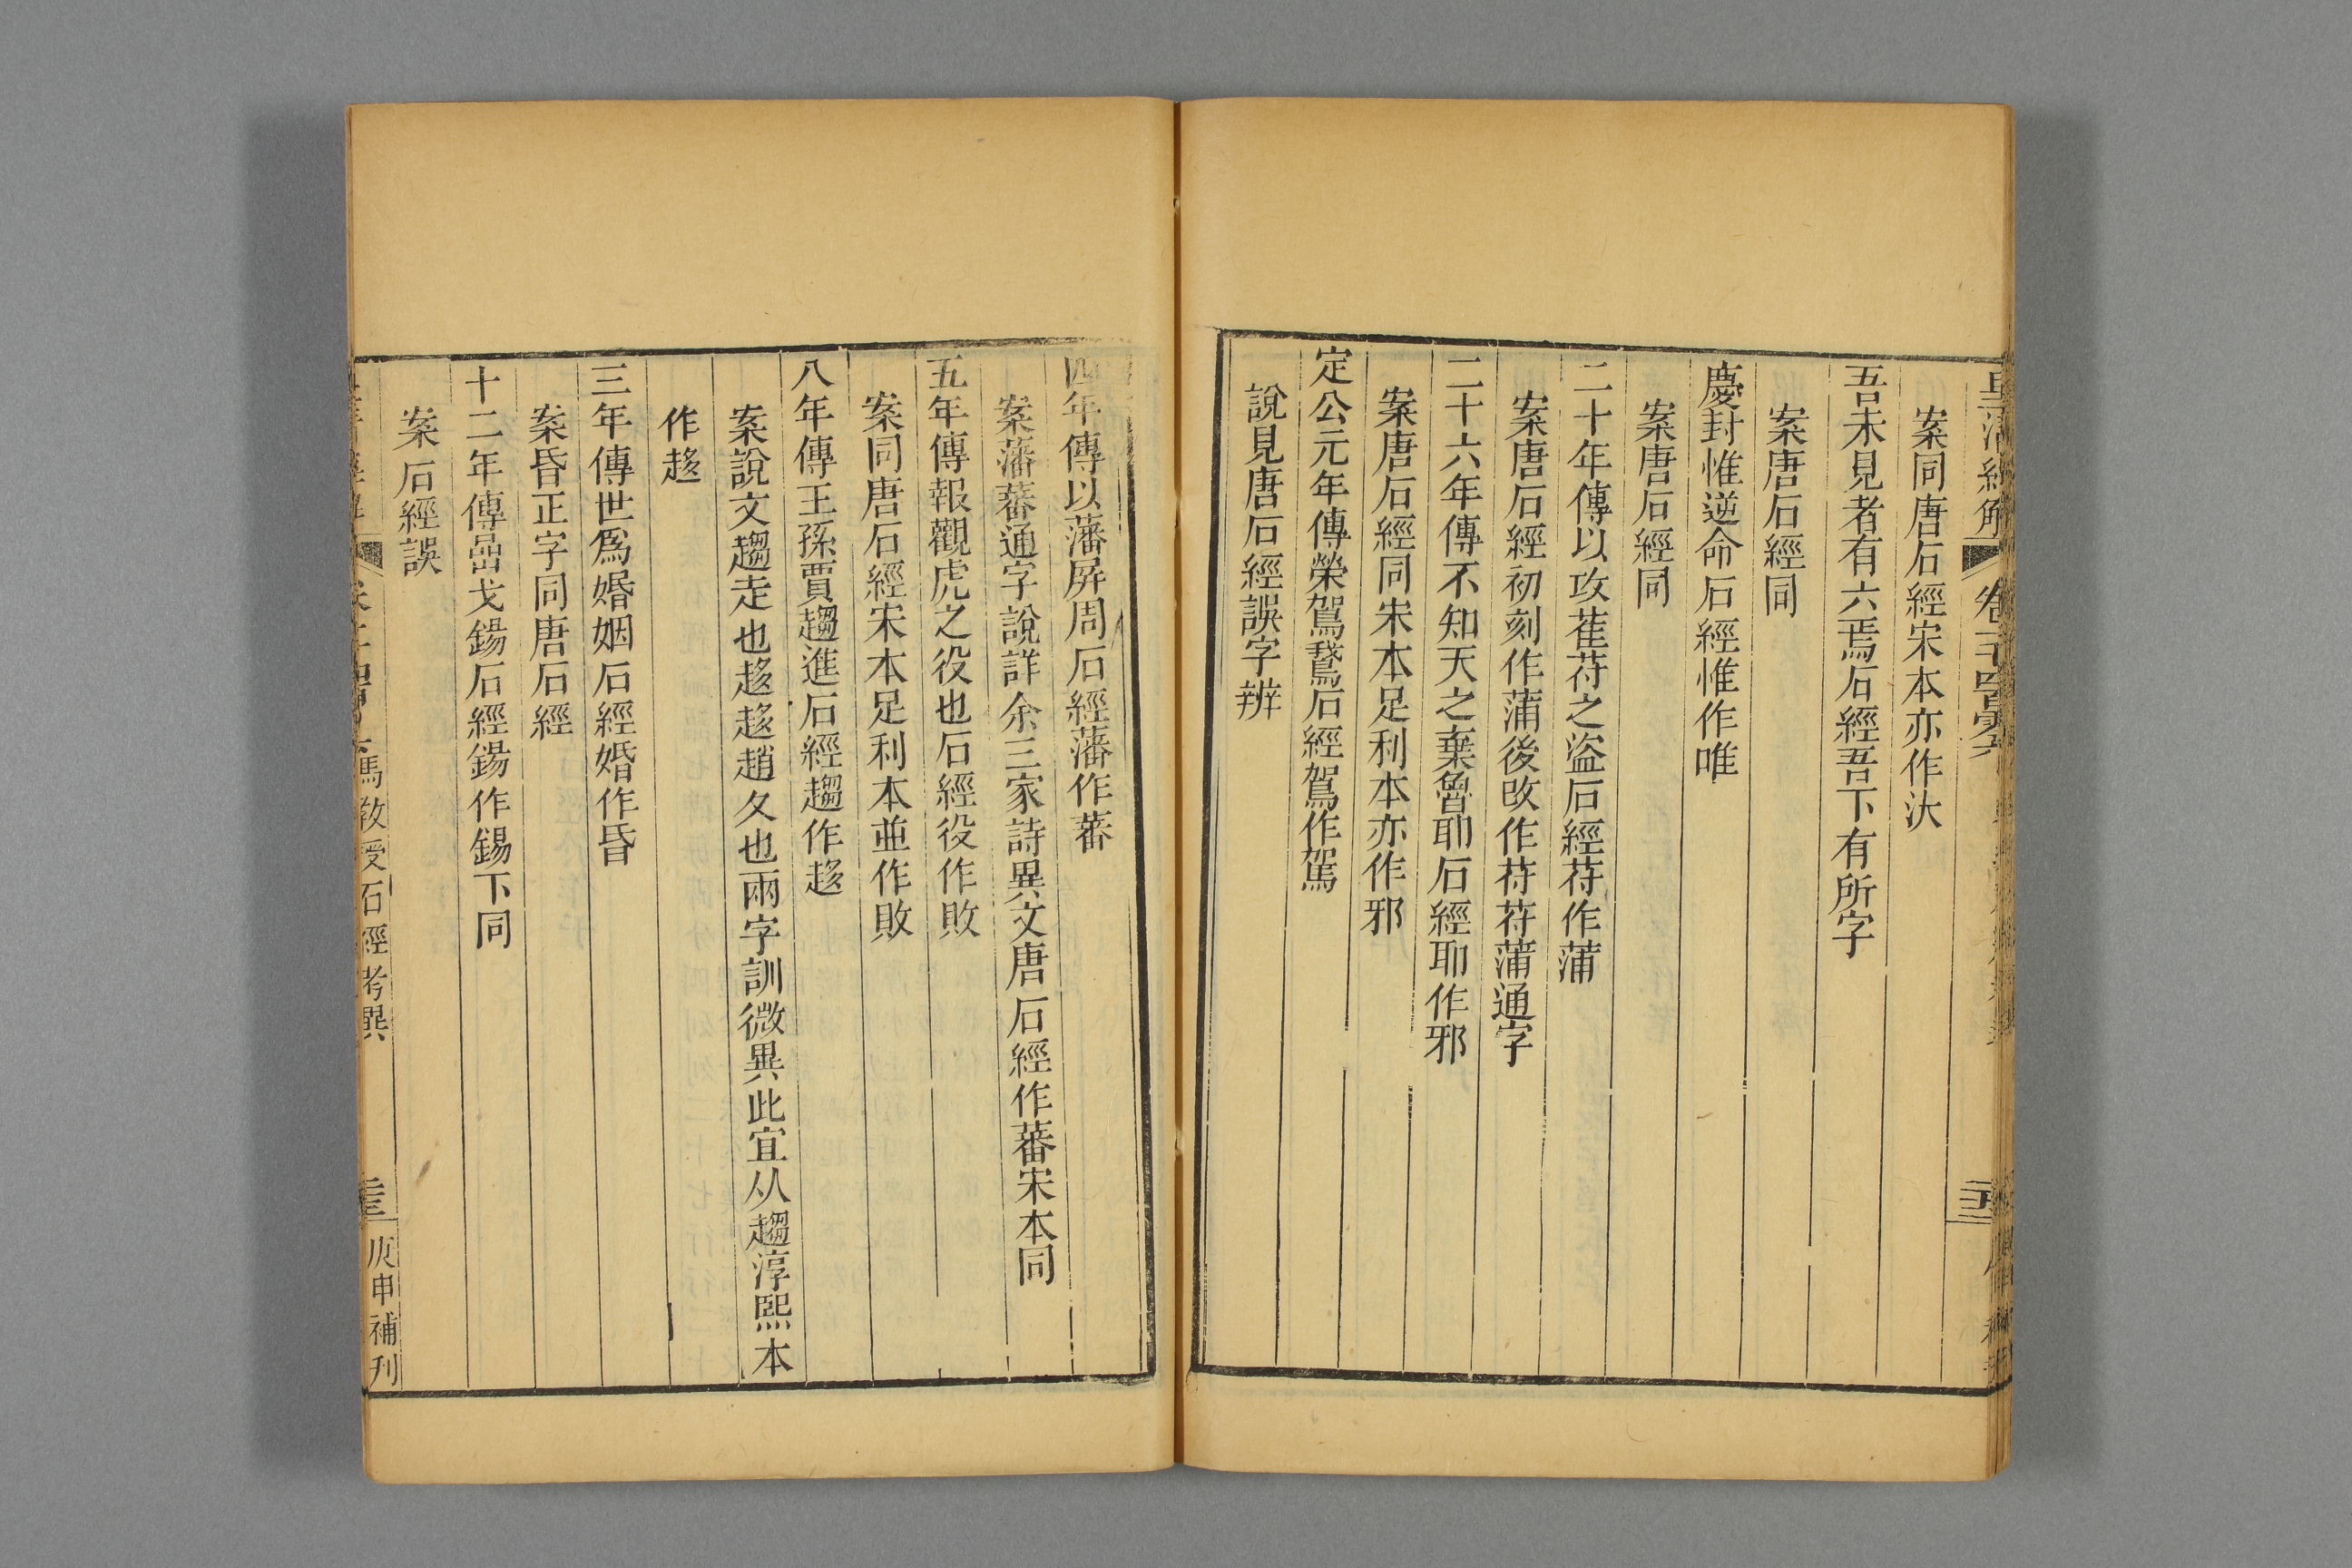 皇清經解
案同唐石經宋本亦作汏
吾未見者有六焉石經吾下有所字
案唐石經同
慶封惟逆命石經惟作唯
案唐石經同
二十年傳以攻萑苻之盜石經苻作蒲
案唐石經初刻作蒲後改作苻苻蒲通字
二十六年傳不知天之棄魯耶石經耶作邪
案唐石經同宋本足利本亦作邪
定公元年傳榮駕鵞石經駕作駕
說見唐石經誤字辨
四年傳以藩屏周石經藩作蕃
案藩蕃通字說詳余三家詩異文唐石經作蕃宋本同
五年傳報觀虎之役也石經役作敗
案同唐石經宋本足利本並作敗
八年傳王孫賈趨進石經趨作趍
案說文趨走也趍趍趙夂也兩字訓微異此宜从趨淳熙本
作趍
三年傳世爲婚姻石經婚作昏
案昏正字同唐石經
十二年傳嵒戈錫石經鍚作錫下同
案石經誤
馮教授石經考異
庚申補刊